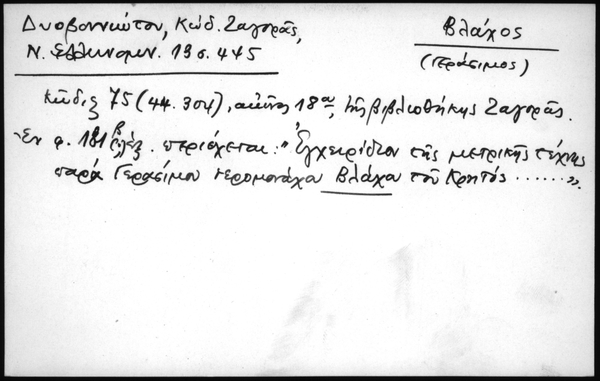 Δυοβουνιώτου, Κώδ. Ζαγορᾶς,
Ν. Ἑλληνομν. 13 σ. 445
Βλάχος
(Γεράσιμος)
Κῶδιξ 75 (44. 304), αἰῶνος 18ου, τῆς βιβλιοθήκης Ζαγορᾶς.
Ἐν φ. 181β περιέχεται: "Ἐγχειρίδιον τῆς μετρικῆς τέχνης
παρά Γερασίμου ιερομονάχου Βλάχου τοῦ Κρητός ......".